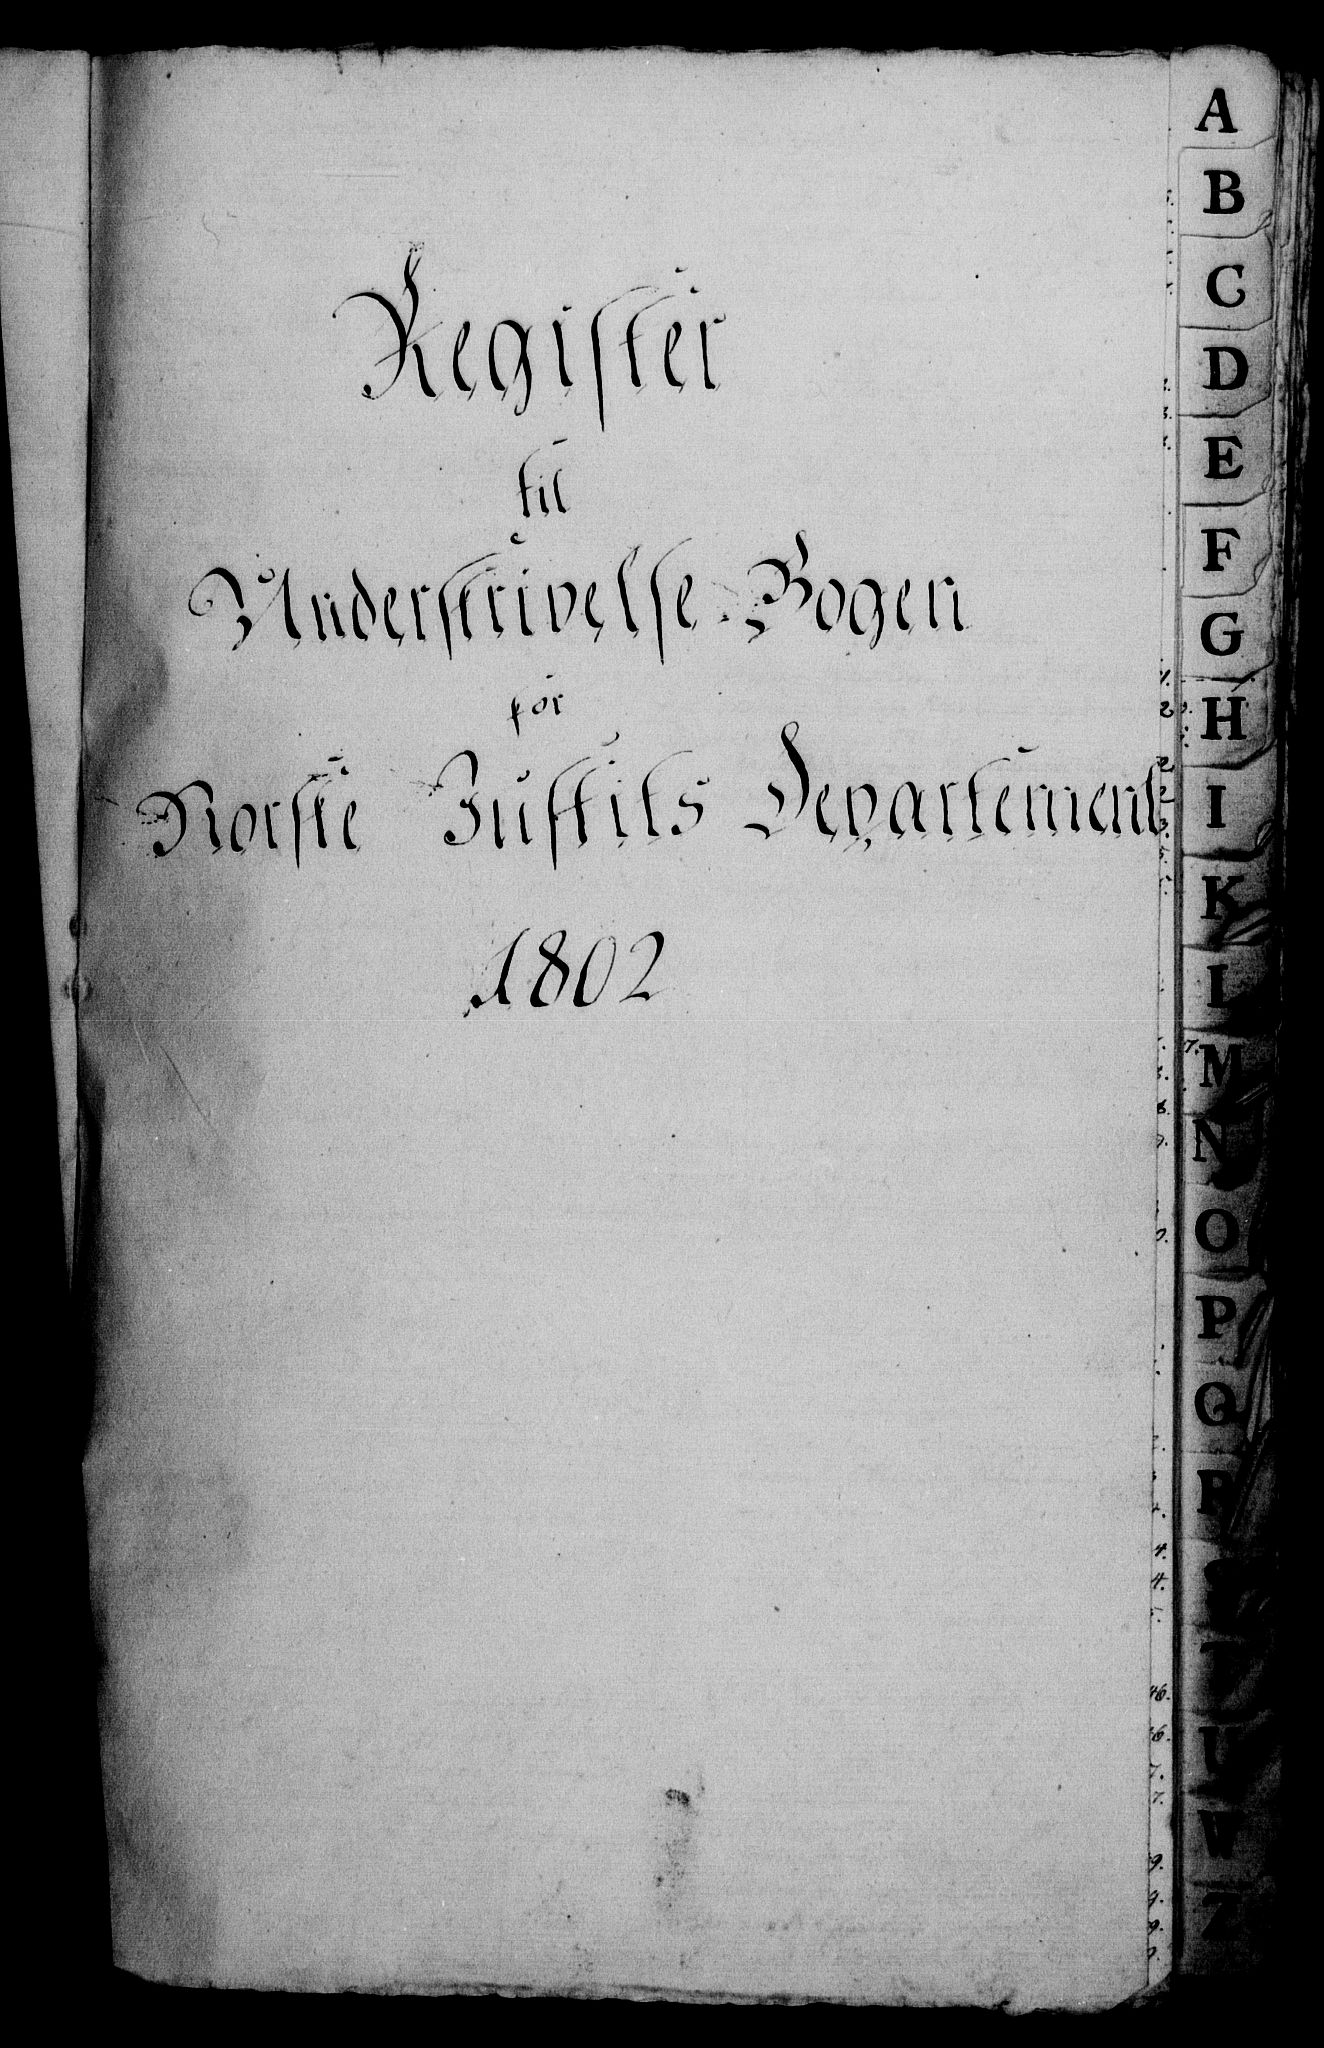 Register
til
Underskrivelse-Bogen
for
Norske Justits Departement
1802
A
B
C
D
E
F
G
H
I
K
I
M
N
O
P
Q
R
T
U
W
Z